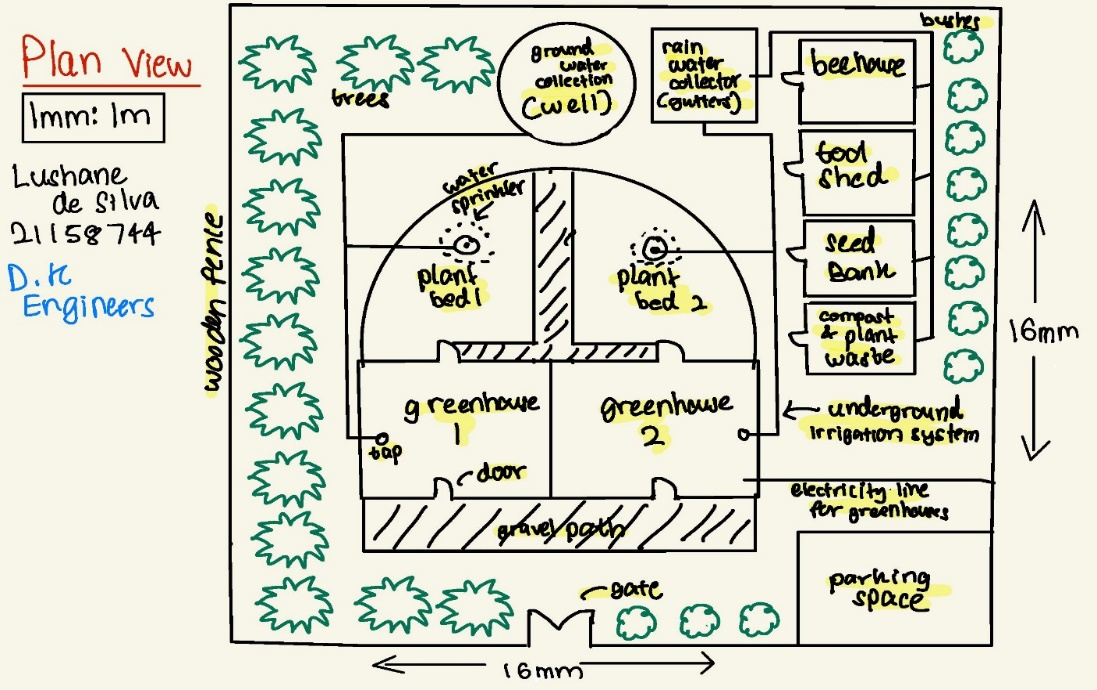 Plan View
1mm: 1m
Lushane
de Silva
21158744
D.K
Engineers
wooden fence
trees
ground
water
collection
(well)
rain
water
collector
(gutters)
bushes
beehouse
tool
shed
seed
Bank
compost
& plant
waste
water
sprinkler
plant
bed 1
plant
bed 2
16mm
greenhouse
1
greenhouse
2
tap
door
underground
irrigation system
electricity line
for greenhouses
gravel path
gate
parking
space
16mm